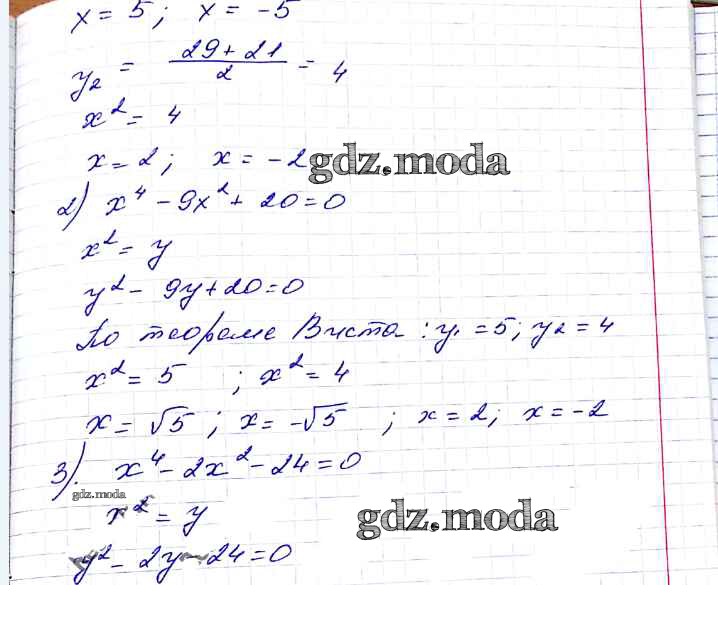 x = 5; x = -5
y₂ = (29 + 21)/2 = 4
x² = 4
x = 2; x = -2
gdz.moda
2) x⁴ - 9x² + 20 = 0
x² = y
y² - 9y + 20 = 0
По теореме Виета: y₁ = 5; y₂ = 4
x² = 5 ; x² = 4
x = √5 ; x = -√5 ; x = 2; x = -2
3). x⁴ - 2x² - 24 = 0
gdz.moda
x² = y
gdz.moda
y² - 2y - 24 = 0